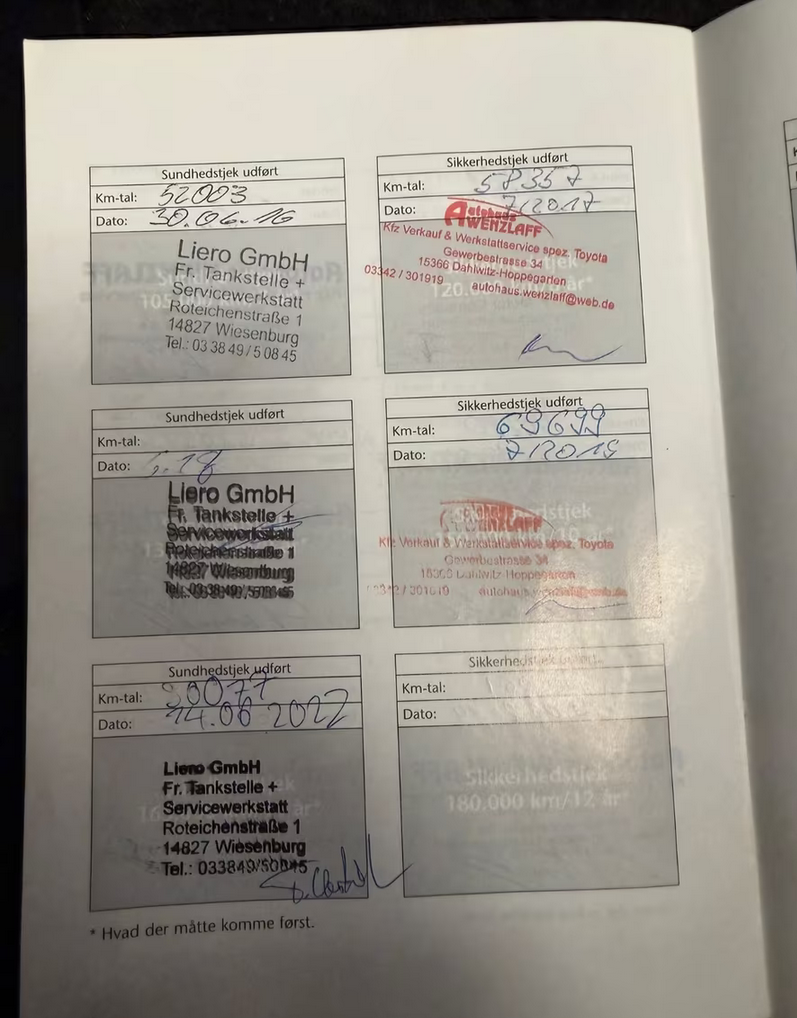 Sundhedstjek udført
Km-tal: 52003
Dato: 30.06.16
Liero GmbH
Fr. Tankstelle +
Servicewerkstatt
Roteichenstraße 1
14827 Wiesenburg
Tel.: 03 38 49/5 08 45
Sikkerhedstjek udført
Km-tal: 58357
Dato: 7/2017
Autohaus
WENZLAFF
Kfz Verkauf & Werkstattservice spez. Toyota
Gewerbestrasse 34
15366 Dahlwitz-Hoppegarten
03342 / 301919 autohaus.wenzlaff@web.de
120.000
Sundhedstjek udført
Km-tal:
Dato:
Liero GmbH
Fr. Tankstelle +
Servicewerkstatt
Roteichenstraße 1
14827 Wiesenburg
Tel.:
Sikkerhedstjek udført
Km-tal: 69699
Dato: 7/2019
WENZLAFF
Kfz Verkauf & Werkstattservice spez. Toyota
Gewerbestrasse 34
15366 Dahlwitz-Hoppegarten
autohaus.wenzlaff@web.de
Sundhedstjek udført
Km-tal:
Dato: 14.06 2022
Liero GmbH
Fr. Tankstelle +
Servicewerkstatt
Roteichenstraße 1
14827 Wiesenburg
Tel.: 033849/50845
Sikkerhedstjek udført
Km-tal:
Dato:
Sikkerhedstjek
180.000 km/12 år*
* Hvad der måtte komme først.